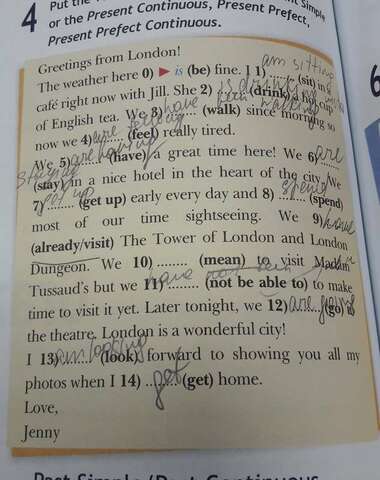 4 Put the
or the Present Continuous, Present Perfect,
Present Perfect Continuous.
Simple
Greetings from London!
am sitting
The weather here 0) ▶ is (be) fine. I 1) ........ (sit) in a
café right now with Jill. She 2) is drinking (drink) a hot cup
have been walking
of English tea. We 3) ........ (walk) since morning so
are feeling
now we 4) ........ (feel) really tired.
We 5) are having (have) a great time here! We 6) are
staying (stay) in a nice hotel in the heart of the city. We
get up spend
7) ........ (get up) early every day and 8) ........ (spend)
most of our time sightseeing. We 9) have
(already/visit) The Tower of London and London
Dungeon. We 10) ........ (mean) to visit Madam
have not been
Tussaud's but we 11) ........ (not be able to) to make
time to visit it yet. Later tonight, we 12) are going (go) to
the theatre. London is a wonderful city!
I 13) am looking (look) forward to showing you all my
photos when I 14) get (get) home.
Love,
Jenny
6